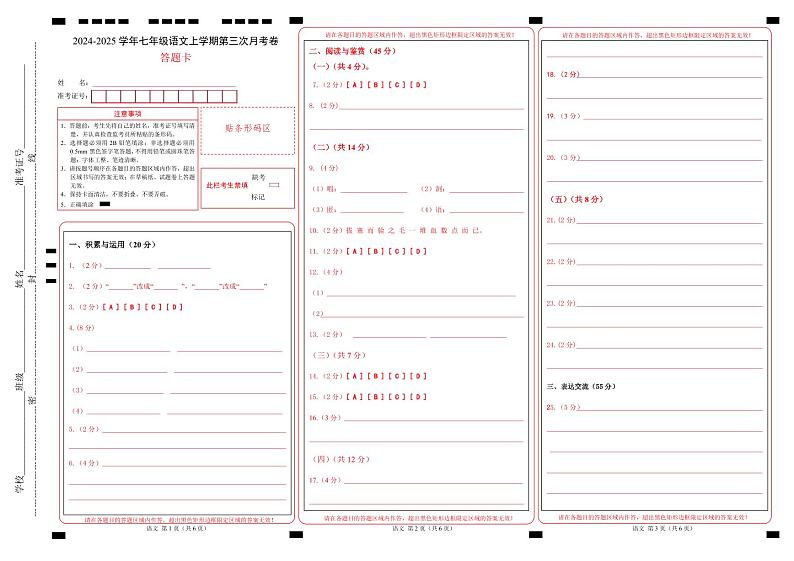 学校
班级
姓名
准考证号
密
封
线
2024-2025 学年七年级语文上学期第三次月考卷
答题卡
姓 名：
准考证号：
注意事项
1．答题前，考生先将自己的姓名，准考证号填写清
楚，并认真检查监考员所粘贴的条形码。
2．选择题必须用2B铅笔填涂；非选择题必须用
0.5mm 黑色签字笔答题，不得用铅笔或圆珠笔答
题；字体工整、笔迹清晰。
3．请按题号顺序在各题目的答题区域内作答，超出
区域书写的答案无效；在草稿纸、试题卷上答题
无效。
4．保持卡面清洁，不要折叠、不要弄破。
5．正确填涂
贴条形码区
此栏考生禁填
缺考
标记
一、积累与运用（20 分）
1. （2 分）
2. （2 分）“ ”改成“ ”，“ ”改成“ ”
3.（2 分）[ A ] [ B ] [ C ] [ D ]
4.(8 分)
（1）
（2）
（3）
（4）
5.（2 分）
6.（4 分）
请在各题目的答题区域内作答，超出黑色矩形边框限定区域的答案无效！
语文 第 1 页（共 6 页）
请在各题目的答题区域内作答，超出黑色矩形边框限定区域的答案无效！
二、阅读与鉴赏（45 分）
（一）（共 4 分）。
7.（2 分）[ A ] [ B ] [ C ] [ D ]
8. （2 分)
（二）（共 14 分）
9. （4 分)
（1）啮： （2）荆：
（3）匿： （4）语：
10.（2 分）拔 塞 而 验 之 毛 一 堆 血 数 点 而 已。
11.（2 分）[ A ] [ B ] [ C ] [ D ]
12.（4 分）
（1）
（2)
13.（2 分）
（三）（共 7 分）
14.（2 分）[ A ] [ B ] [ C ] [ D ]
15.（2 分）[ A ] [ B ] [ C ] [ D ]
16.（3 分）
（四）（共 12 分）
17.（4 分）
请在各题目的答题区域内作答，超出黑色矩形边框限定区域的答案无效！
语文 第 2 页（共 6 页）
请在各题目的答题区域内作答，超出黑色矩形边框限定区域的答案无效！
18.（2 分）
19.（3 分）
20.（3 分）
（五）（共 8 分）
21.（2 分）
22.（2 分）
23.（2 分）
24.（2 分）
三、表达交流（55 分）
25.（5 分）
请在各题目的答题区域内作答，超出黑色矩形边框限定区域的答案无效！
语文 第 3 页（共 6 页）